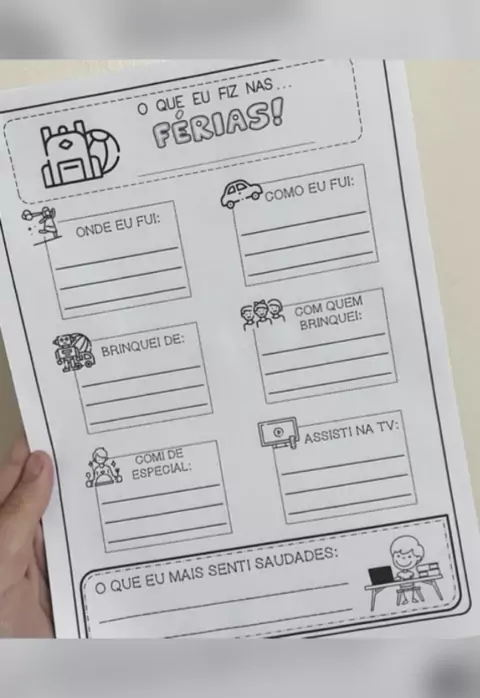 O QUE EU FIZ NAS...
FÉRIAS!
ONDE EU FUI:
COMO EU FUI:
BRINQUEI DE:
COM QUEM
BRINQUEI:
COMI DE
ESPECIAL:
ASSISTI NA TV:
O QUE EU MAIS SENTI SAUDADES: